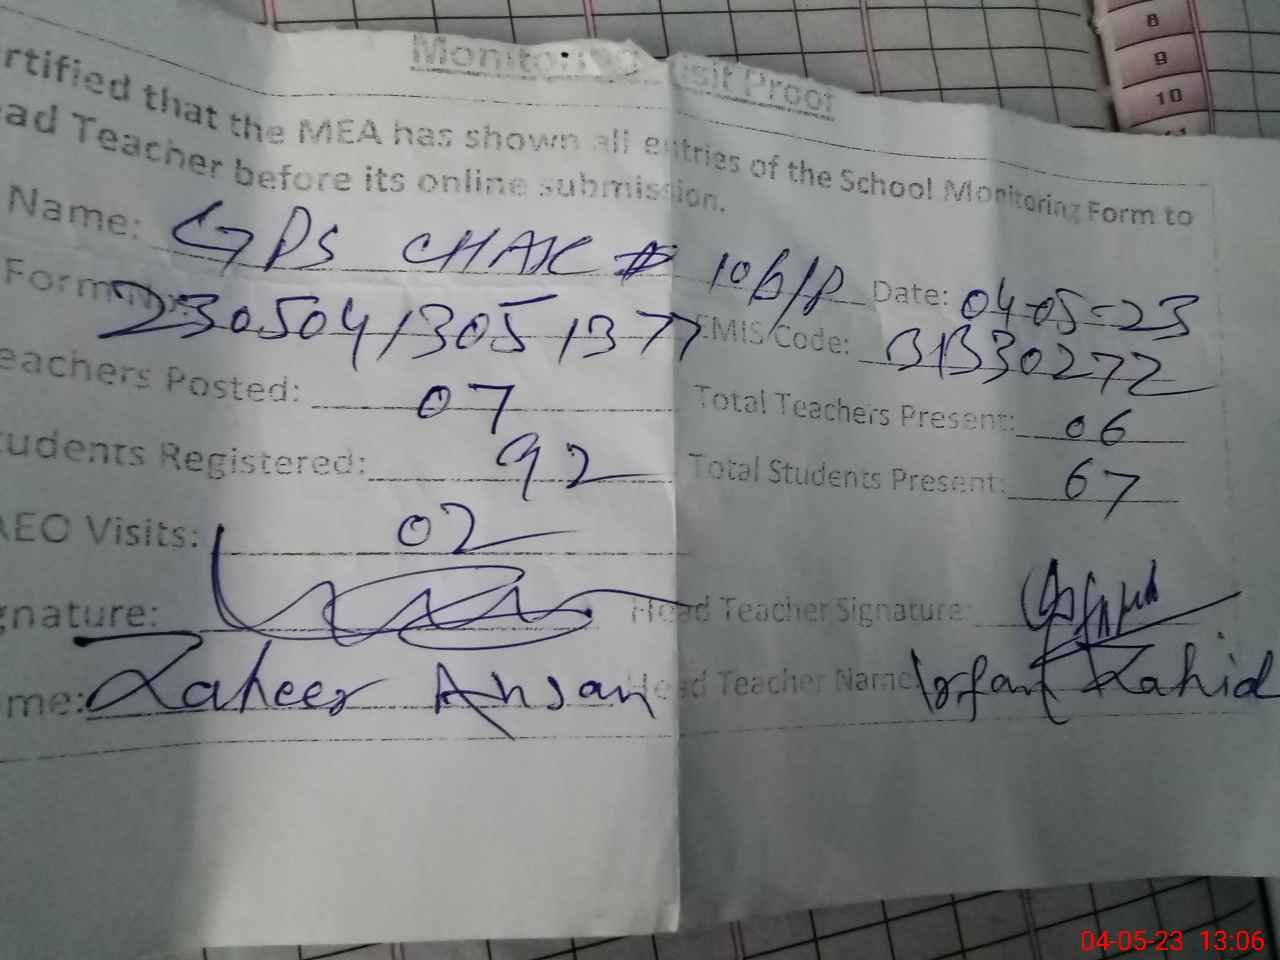 8
9
10
Monitoring Visit Proof
rtified that the MEA has shown all entries of the School Monitoring Form to
ad Teacher before its online submission.
Name: GPS CHAK # 106/P Date: 04-05-23
Form 23050413051377 EMIS Code: 31330272
eachers Posted: 07 Total Teachers Present: 06
tudents Registered: 92 Total Students Present: 67
AEO Visits: 02
gnature: Head Teacher Signature:
me: Zaheer Ahsan Head Teacher Name Irfan Zahid
04-05-23 13:06